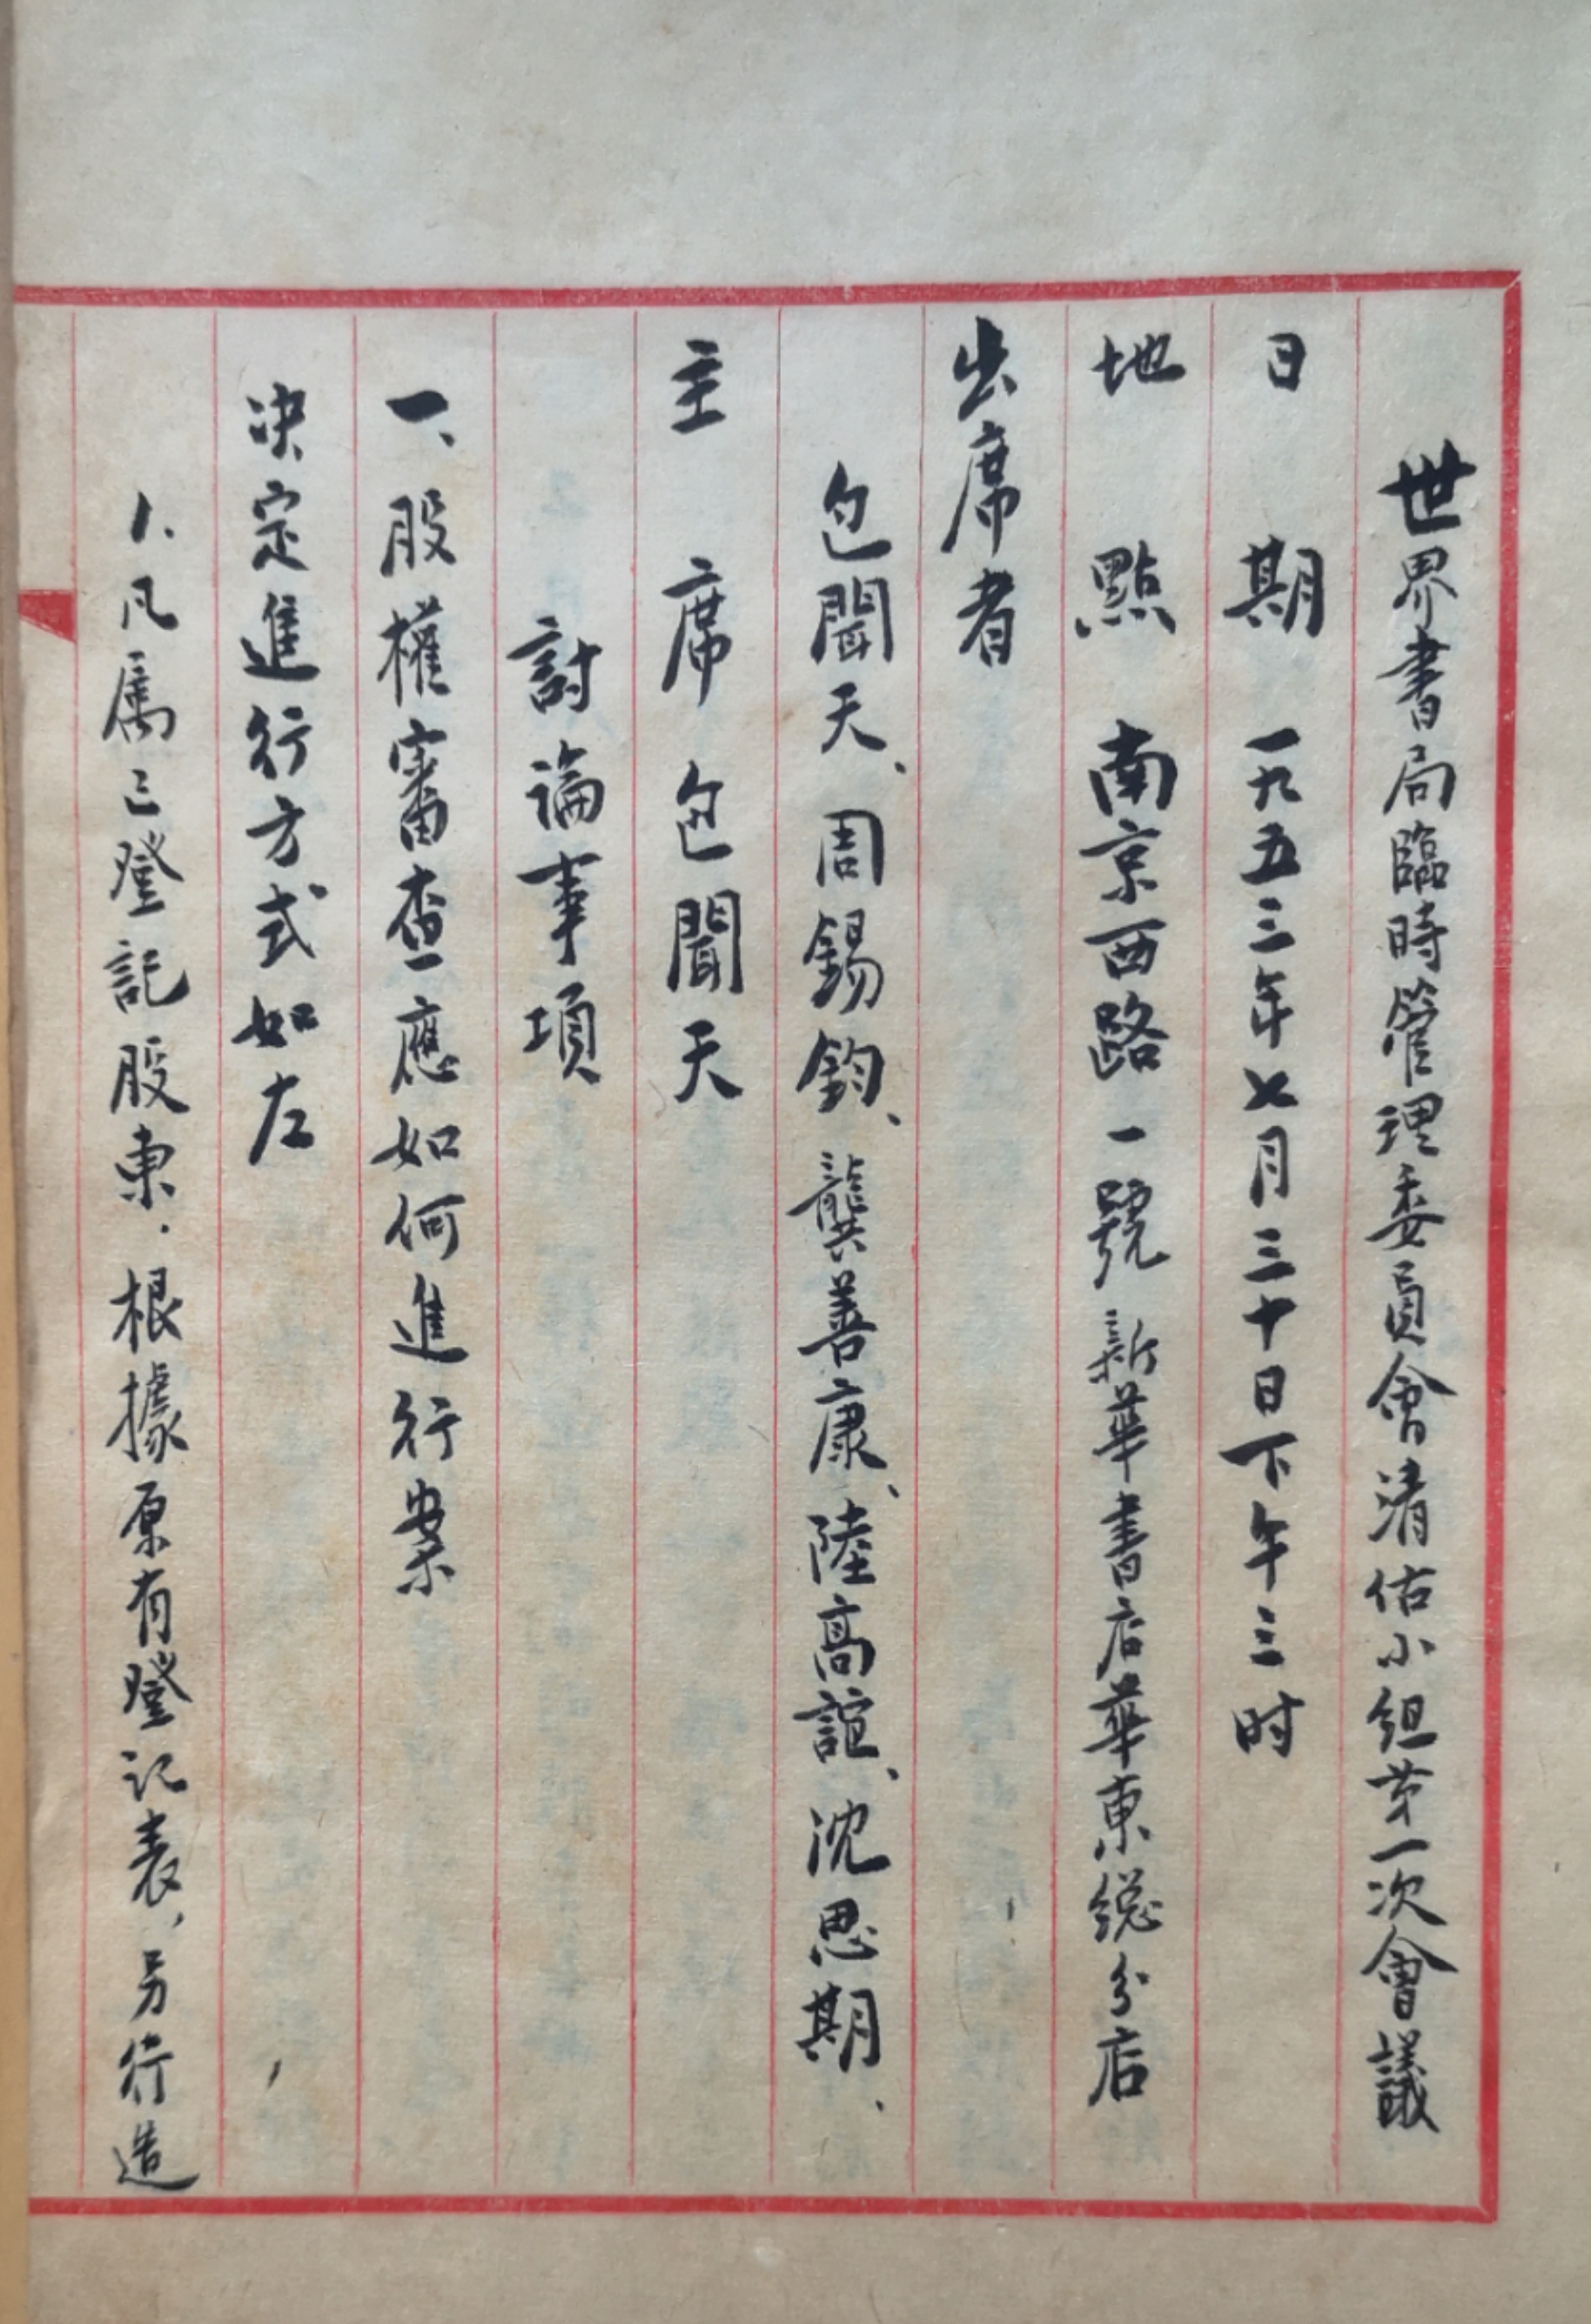 世界書局臨時管理委員會清估小組第一次會議
日期 一九五三年七月三十日下午三时
地點 南京西路一號新華書店華東總分店
出席者
包聞天、周錫鈞、龔善康、陸高誼、沈思期、
主席 包聞天
討論事項
一、股權審查應如何進行案
决定進行方式如左
1、凡属已登記股東．根據原有登记表，另行造